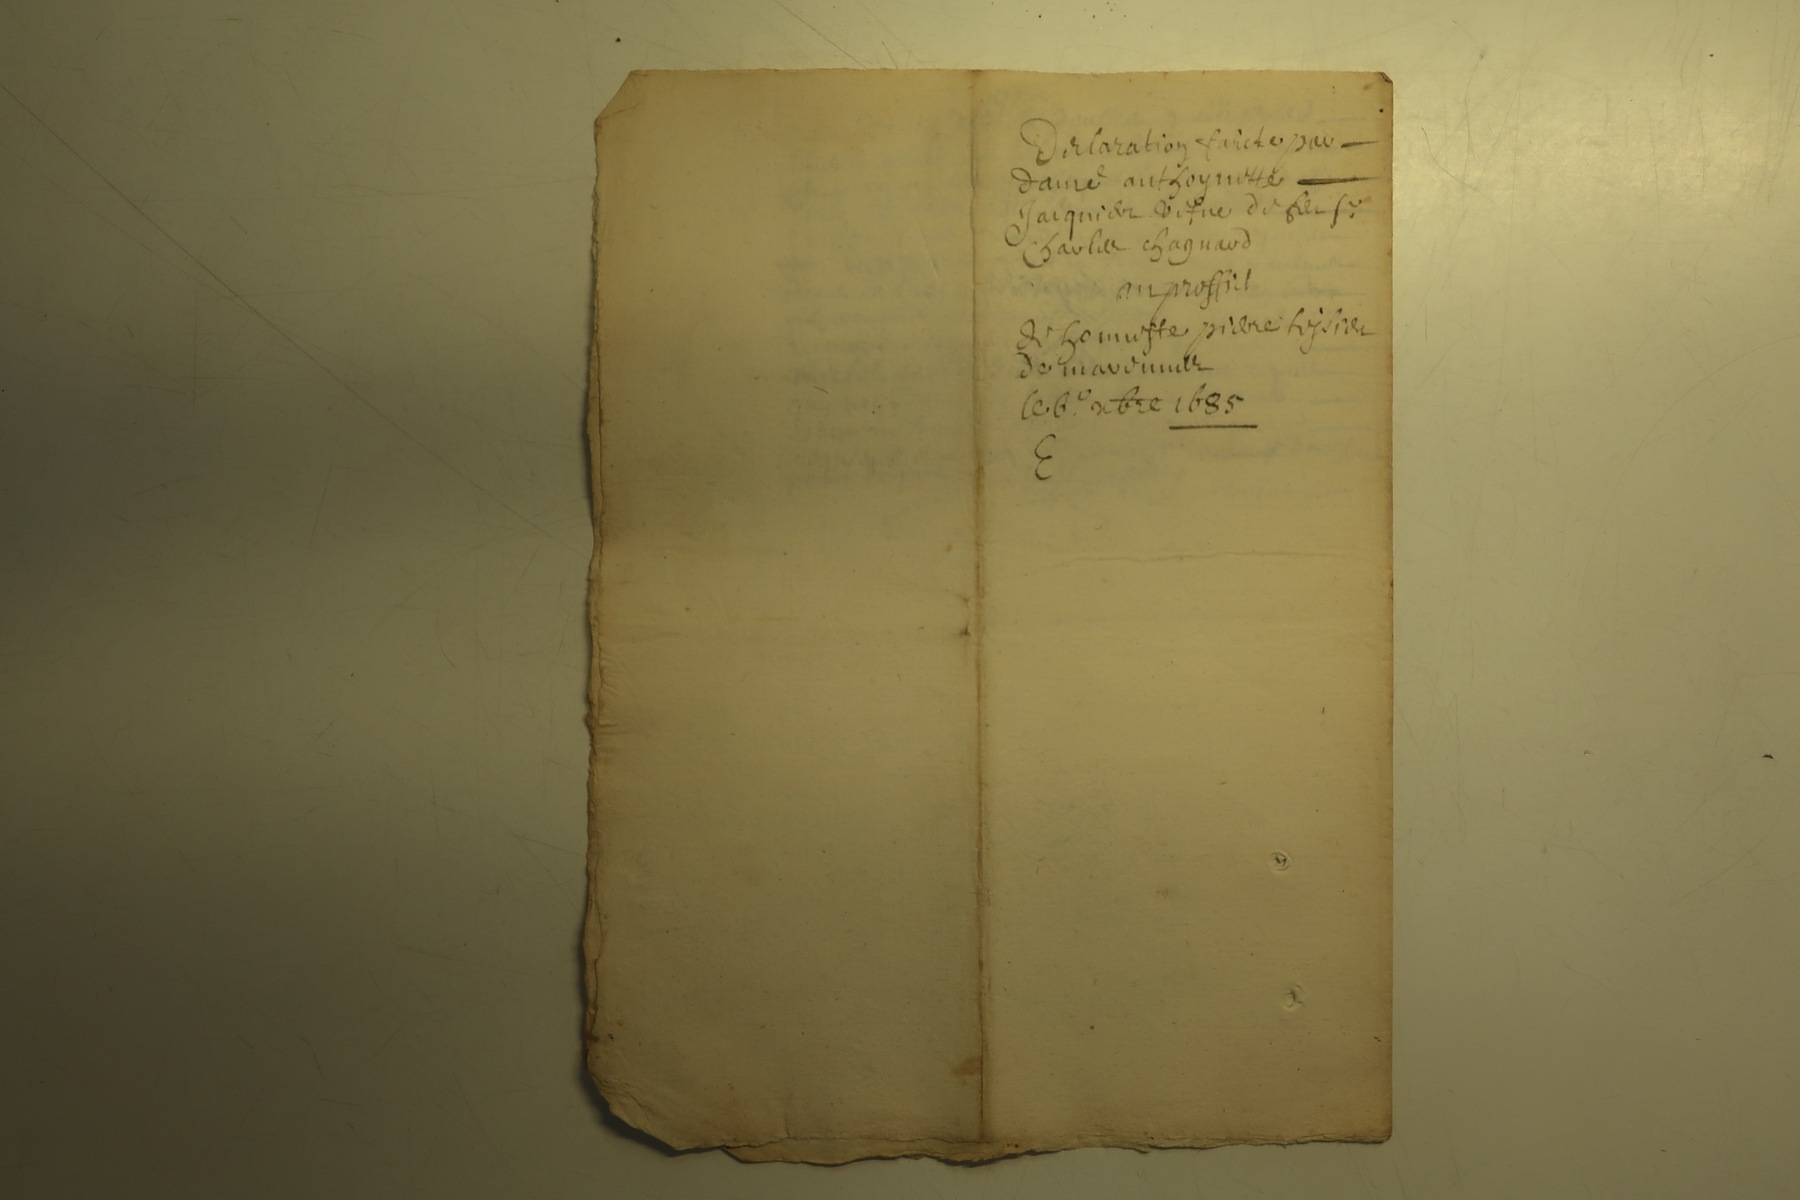 Declaration faicte par
dame anthoynette
Jacquier vefve de feu sr
Charles chaguard
au proffit
de honneste pierre
de
le 6.e xbre 1685
E